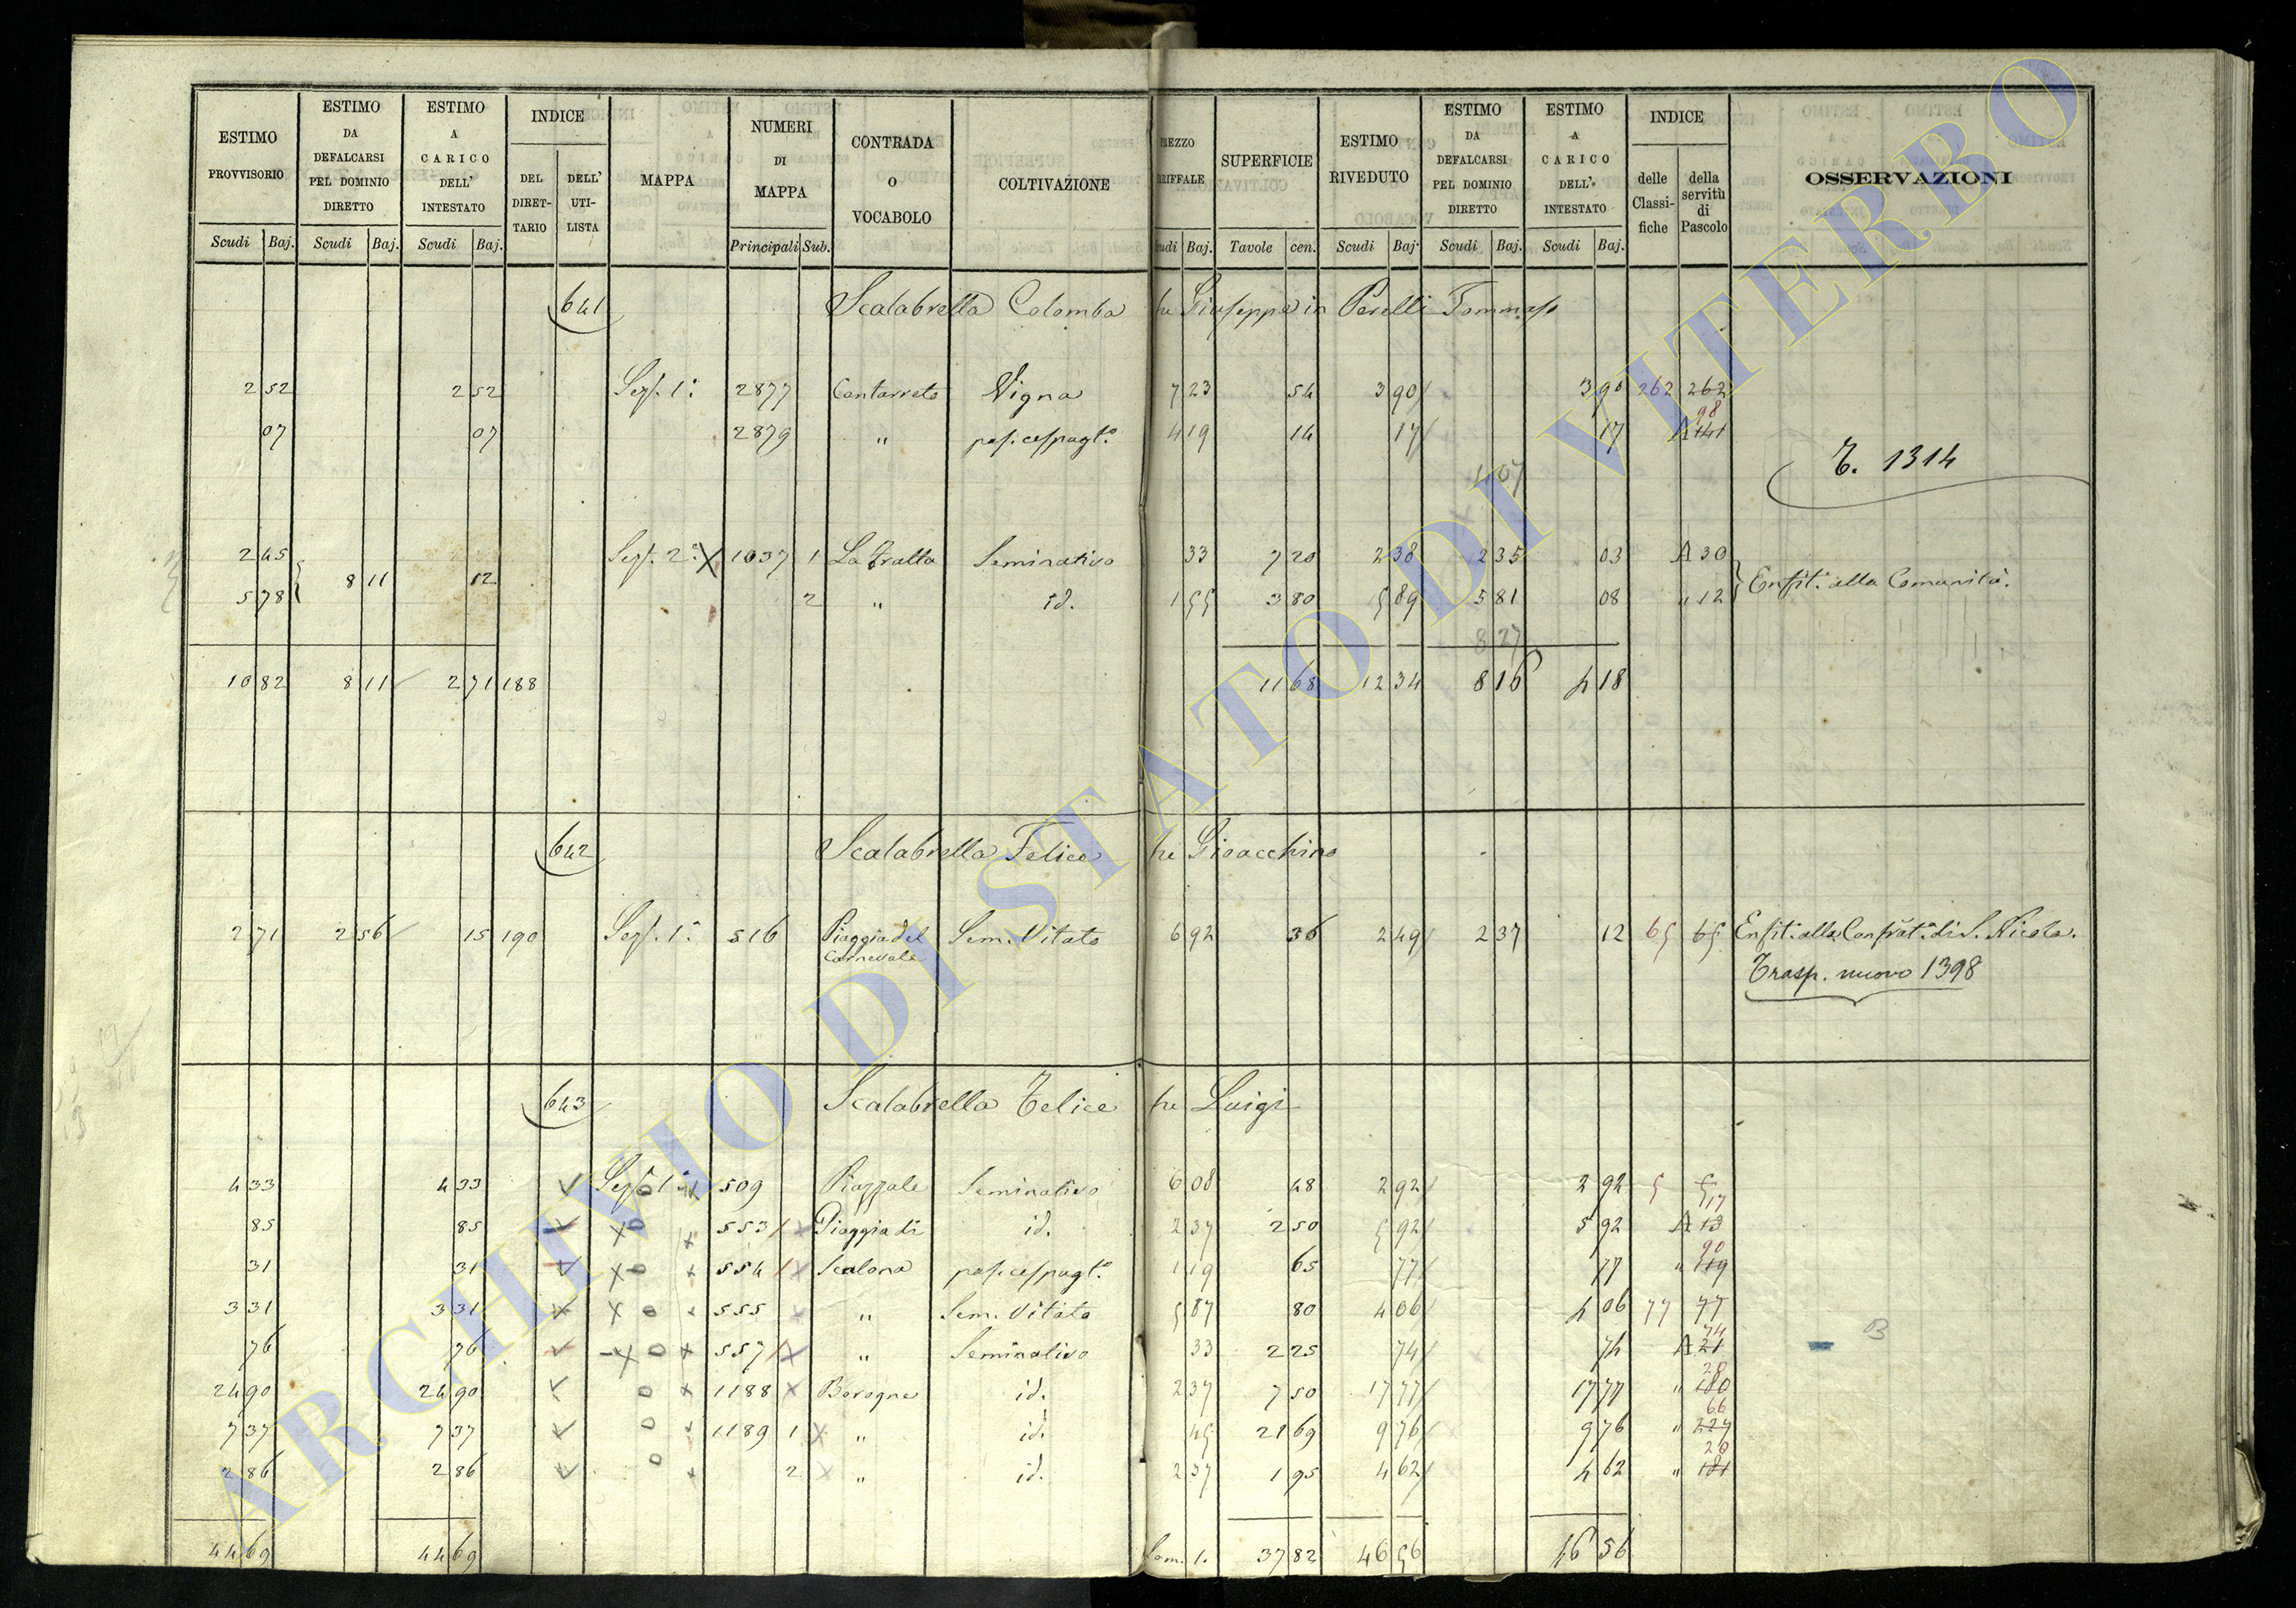 ESTIMO PROVVISORIO | ESTIMO DA DEFALCARSI PEL DOMINIO DIRETTO | ESTIMO A CARICO DELL' INTESTATO | INDICE DEL DIRETTARIO | DELL' UTILISTA | MAPPA | NUMERI DI MAPPA | CONTRADA O VOCABOLO | COLTIVAZIONE | REZZO RIFFALE | SUPERFICIE | ESTIMO RIVEDUTO | ESTIMO DA DEFALCARSI PEL DOMINIO DIRETTO | ESTIMO A CARICO DELL' INTESTATO | INDICE delle Classifiche | della servitù di Pascolo | OSSERVAZIONI
Scudi Baj. Scudi Baj. Scudi Baj. Principali Sub. udi Baj. Tavole cen. Scudi Baj. Scudi Baj. Scudi Baj.
641 Scalabrella Colomba fu Giuseppe in Perelli Tommaso
2 52 2 52 Sez. 1ª 2877 Cantarreto Vigna 7 23 54 3 90 3 90 262 262
07 07 2879 " pas. cespugt.º 4 19 14 17 17 A 141 98
1 07
T. 1314
2 45 Sez. 2ª X 1037 1 La Fratta Seminativo 33 7 20 2 38 2 35 03 A 30
8 11 12 Enfit. alla Comunità.
5 78 2 " id. 1 55 3 80 5 89 5 81 08 " 12
8 27
10 82 8 11 2 71 188 11 68 12 34 8 16 4 18
642 Scalabrella Felice fu Gioacchino
2 71 2 56 15 190 Sez. 1ª 516 Piaggia del Carnevale Sem. Vitato 6 92 36 2 49 2 37 12 65 65 Enfit. alla Confrat. di S. Nicola.
Trasp. nuovo 1398
643 Scalabrella Felice fu Luigi
4 33 4 33 Sez. 1ª 509 Piazzale Seminativo 6 08 48 2 92 2 92 5 5
85 85 553 Piaggia di id. 2 37 2 50 5 92 5 92 A 13 17
31 31 554 Scalona pas. cespugt.º 1 19 65 77 77 " 119 90
3 31 3 31 555 " Sem. Vitato 5 87 80 4 06 4 06 77 77
76 76 557 " Seminativo 33 2 25 74 74 A 21 74
B
24 90 24 90 1188 Borogna id. 2 37 7 50 17 77 17 77 " 180 28
7 37 7 37 1189 1 " id. 45 21 69 9 76 9 76 " 227 66
2 86 2 86 2 " id. 2 37 1 95 4 62 4 62 " 181 29
44 69 44 69 Som. 1. 37 82 46 56 46 56
ARCHIVIO DI STATO DI VITERBO